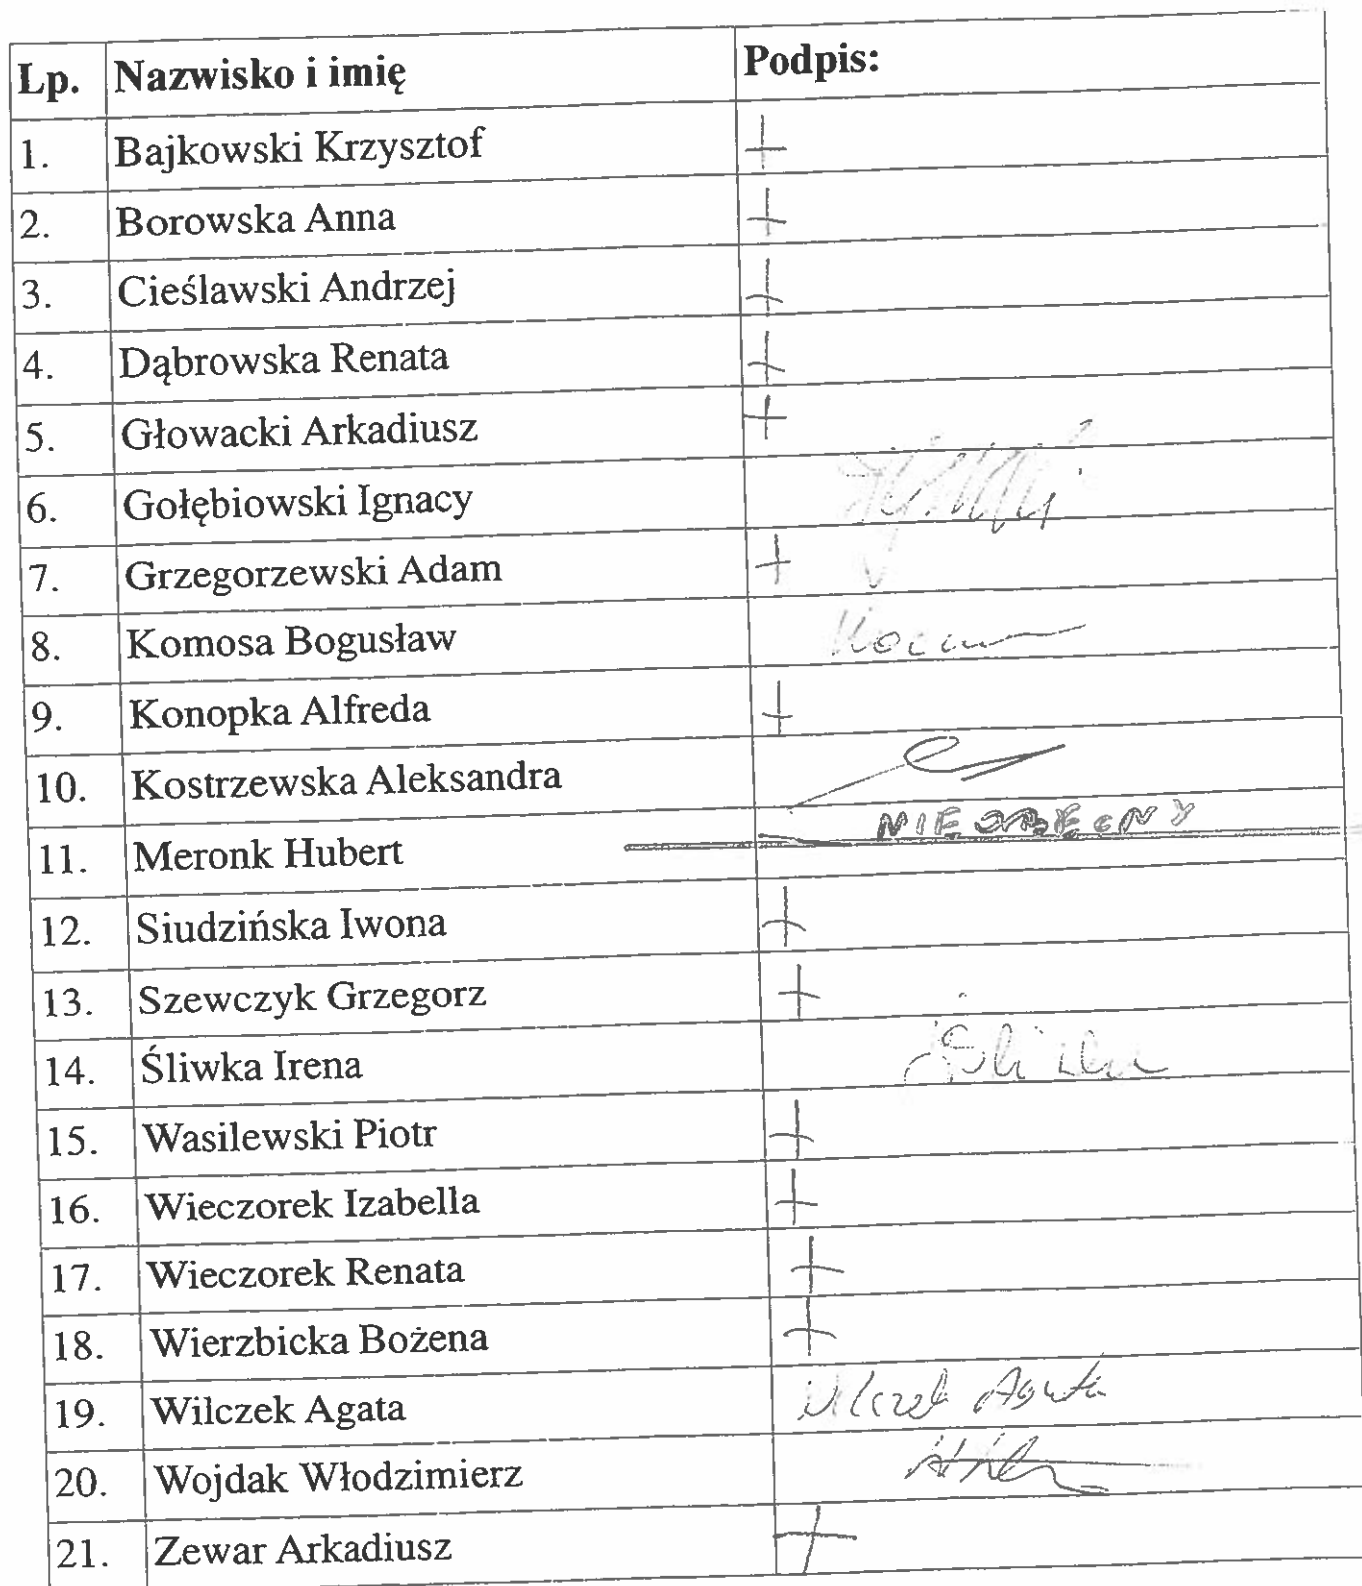 Lp. Nazwisko i imię Podpis:
1. Bajkowski Krzysztof +
2. Borowska Anna +
3. Cieślawski Andrzej +
4. Dąbrowska Renata +
5. Głowacki Arkadiusz +
6. Gołębiowski Ignacy
7. Grzegorzewski Adam +
8. Komosa Bogusław
9. Konopka Alfreda +
10. Kostrzewska Aleksandra
11. Meronk Hubert NIEOBECNY
12. Siudzińska Iwona +
13. Szewczyk Grzegorz +
14. Śliwka Irena
15. Wasilewski Piotr +
16. Wieczorek Izabella +
17. Wieczorek Renata +
18. Wierzbicka Bożena +
19. Wilczek Agata Wilczek Agata
20. Wojdak Włodzimierz
21. Zewar Arkadiusz +